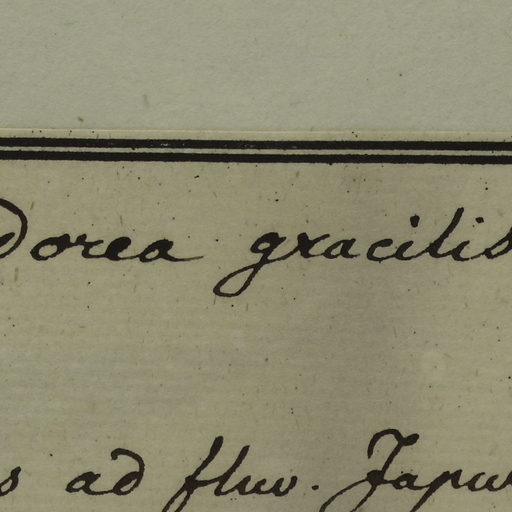 dorea gracilis
s ad fluv. Japu